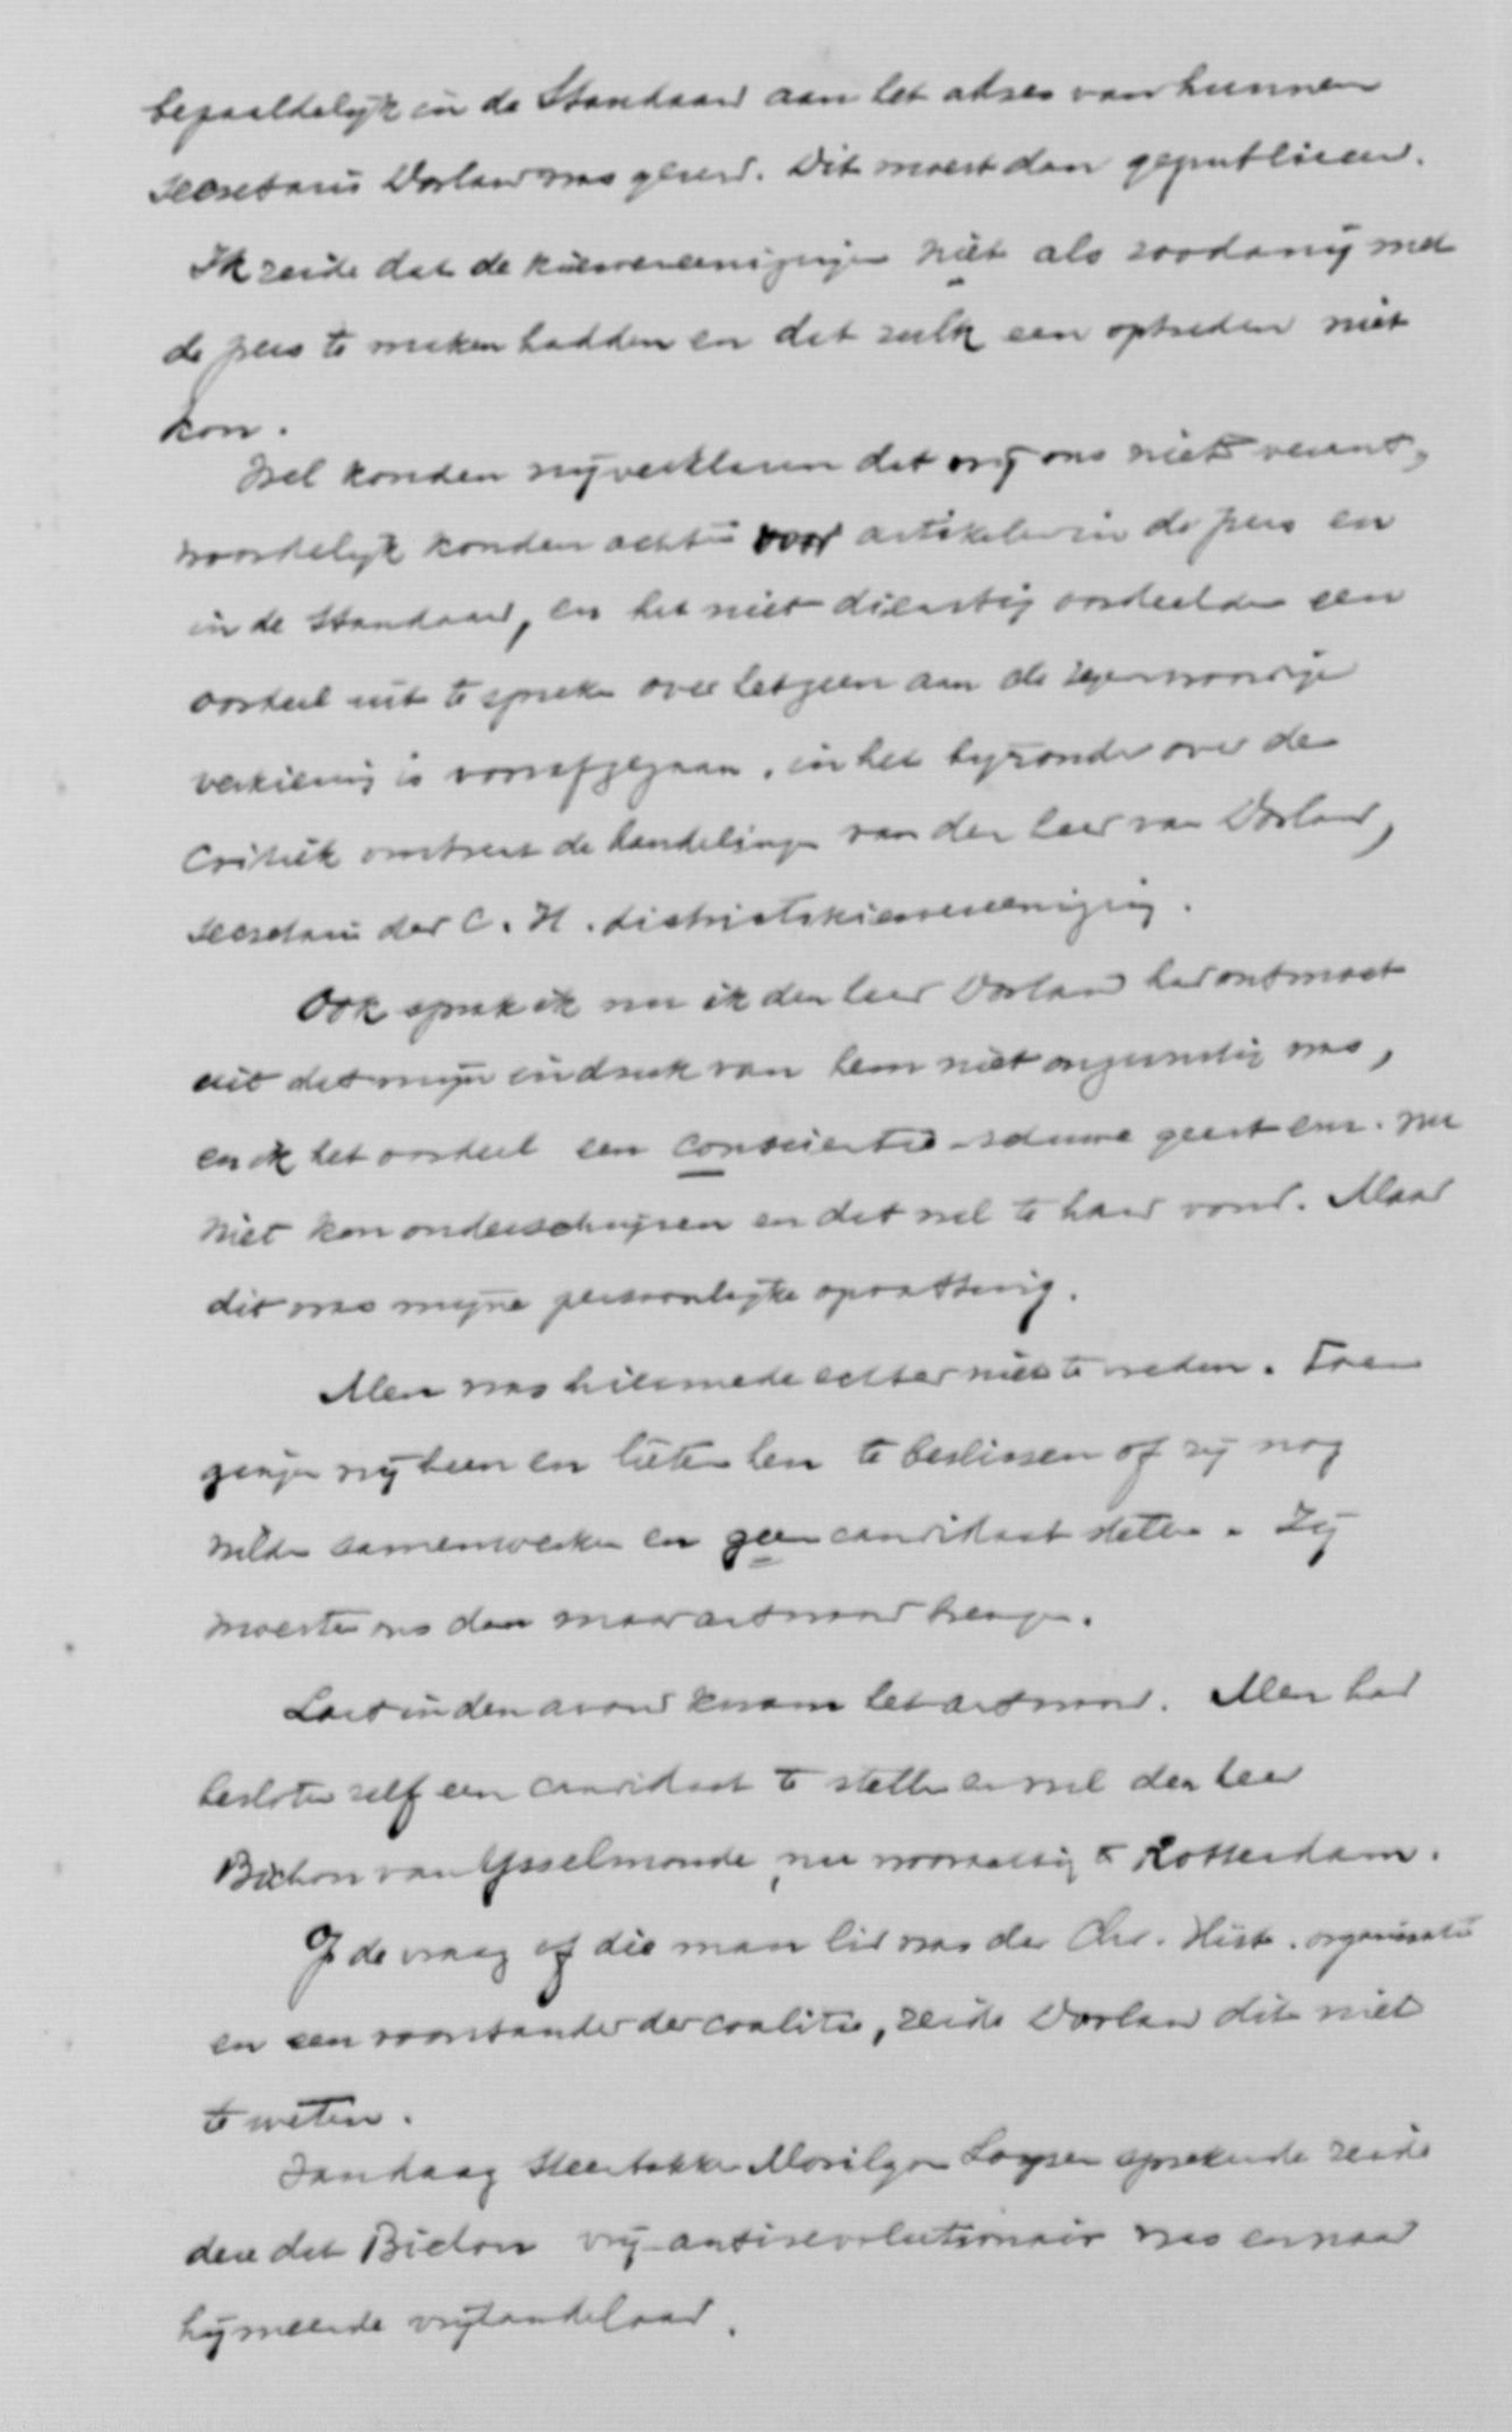 bepaaldelijk in de Standaard aan het adres van hunnen
secretaris Dorland was geuit. Dit moest dan gepubliceerd.
Ik zeide dat de kiesvereenigingen niet als zoodanig met
de pers te maken hadden en dat zulk een optreden niet
kon.
Wel konden wij verklaren dat wij ons niet verant-
woordelijk konden achten voor artikelen in de pers en
in de Standaard, en het niet dienstig oordeelden een
oordeel uit te spreken over hetgeen aan de tegenwoordige
verkiezing is voorafgegaan, in het bijzonder over de
Critiek omtrent de handelingen van den heer van Dorland,
secretaris der C. H. districtskiesvereeniging.
Ook sprak ik nu ik den heer Dorland had ontmoet
uit dat mijn indruk van hem niet ongunstig was,
en ik het oordeel een conscientie-schuwe geest enz. nu
niet kon onderschrijven en dat wel te hard vond. Maar
dit was mijne persoonlijke opvatting.
Men was hiermede echter niet tevreden. Toen
gingen wij heen en lieten hen te beslissen of zij nog
wilden samenwerken en geen candidaat stellen. Zij
moesten ons dan maar antwoord brengen.
Laat in den avond kwam het antwoord. Men had
besloten zelf een candidaat te stellen en wel den heer
Bichon van Ysselmonde, nu woonachtig te Rotterdam.
Op de vraag of die man lid was der Chr. Hist. organisatie
en een voorstander der coalitie, zeide Dorland dit niet
te weten.
Vandaag sprekende zeide
deze dat Bichon vrij-antirevolutionair was en naar
hij meende vrijhandelaar.